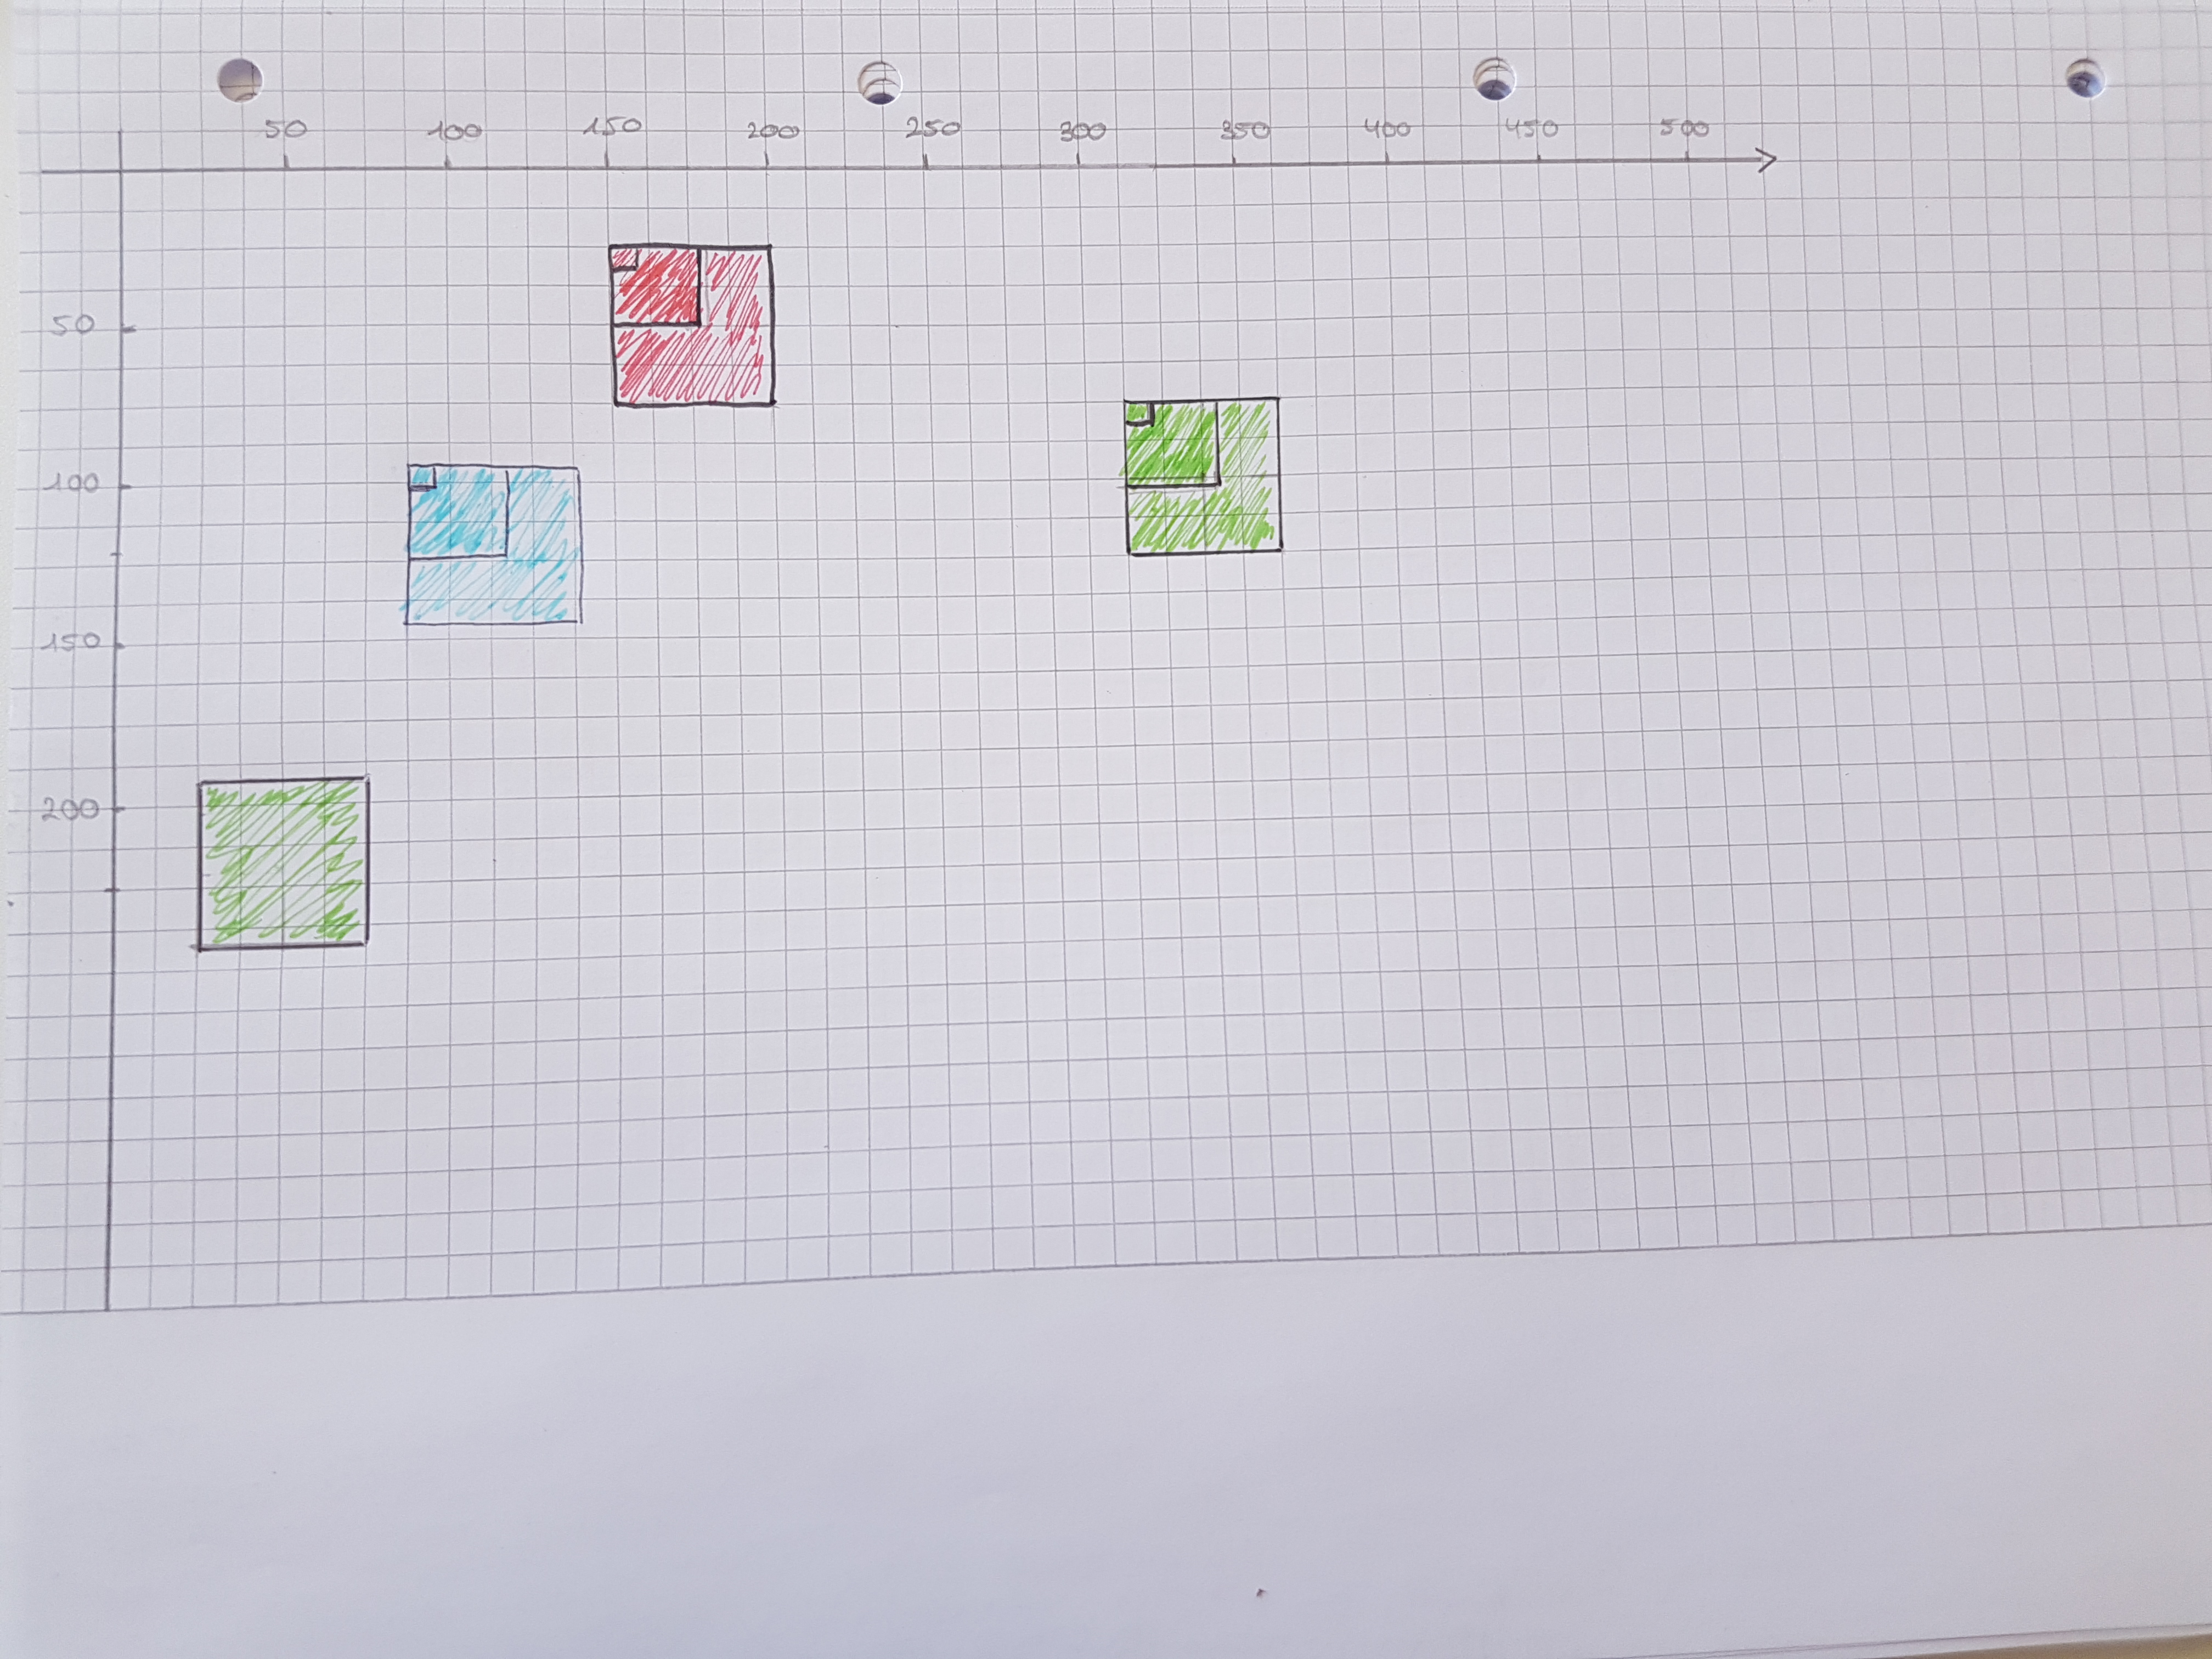 50 100 150 200 250 300 350 400 450 500
50
100
150
200